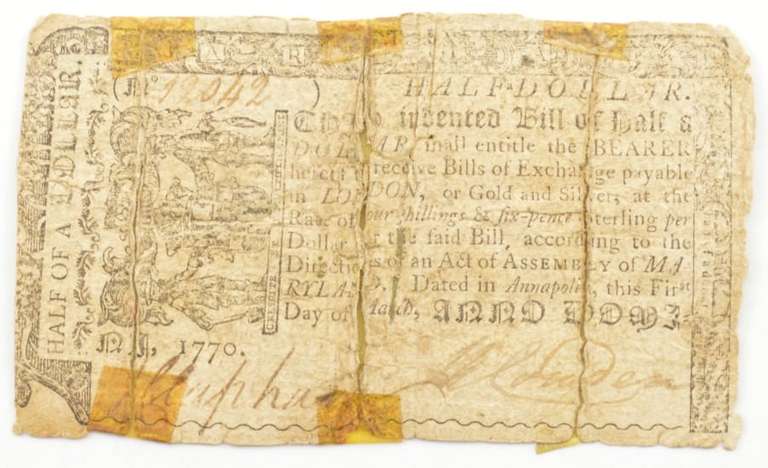 HALF OF A DOLLAR.
(No 12042 )
HALF-DOLLAR.
indented Bill of Half a
DOLLAR shall entitle the BEARER
receive Bills of Exchange payable
in LONDON, or Gold and Silver, at the
Rate of four shillings & six-pence Sterling per
Dollar for the said Bill, according to the
Directions of an Act of ASSEMBLY of MA-
RYLAND. Dated in Annapolis, this First
Day of March, ANNO DOMI-
NI, 1770.